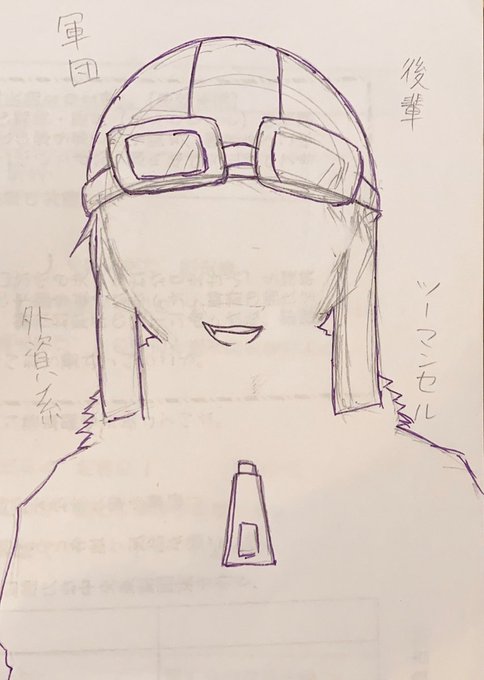 軍団
後輩
外資系
ツーマンセル